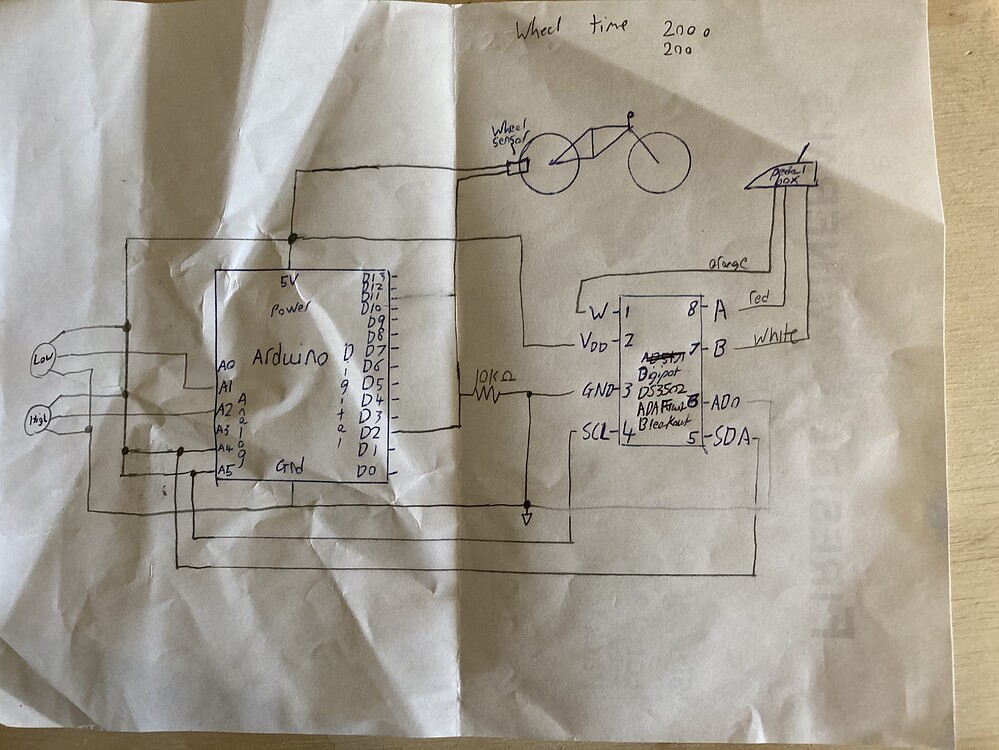 Wheel time 2000
200
Wheel
sensor
pedal
box
orange
red
white
5V
Power
Arduino
Digital
Analog
Gnd
D13
D12
D11
D10
D9
D8
D7
D6
D5
D4
D3
D2
D1
D0
A0
A1
A2
A3
A4
A5
Low
High
10KΩ
W 1
VDD 2
GND 3
SCL 4
8 A
7 B
6 AD0
5 SDA
Digipot
DS3502
ADAFruit
Breakout